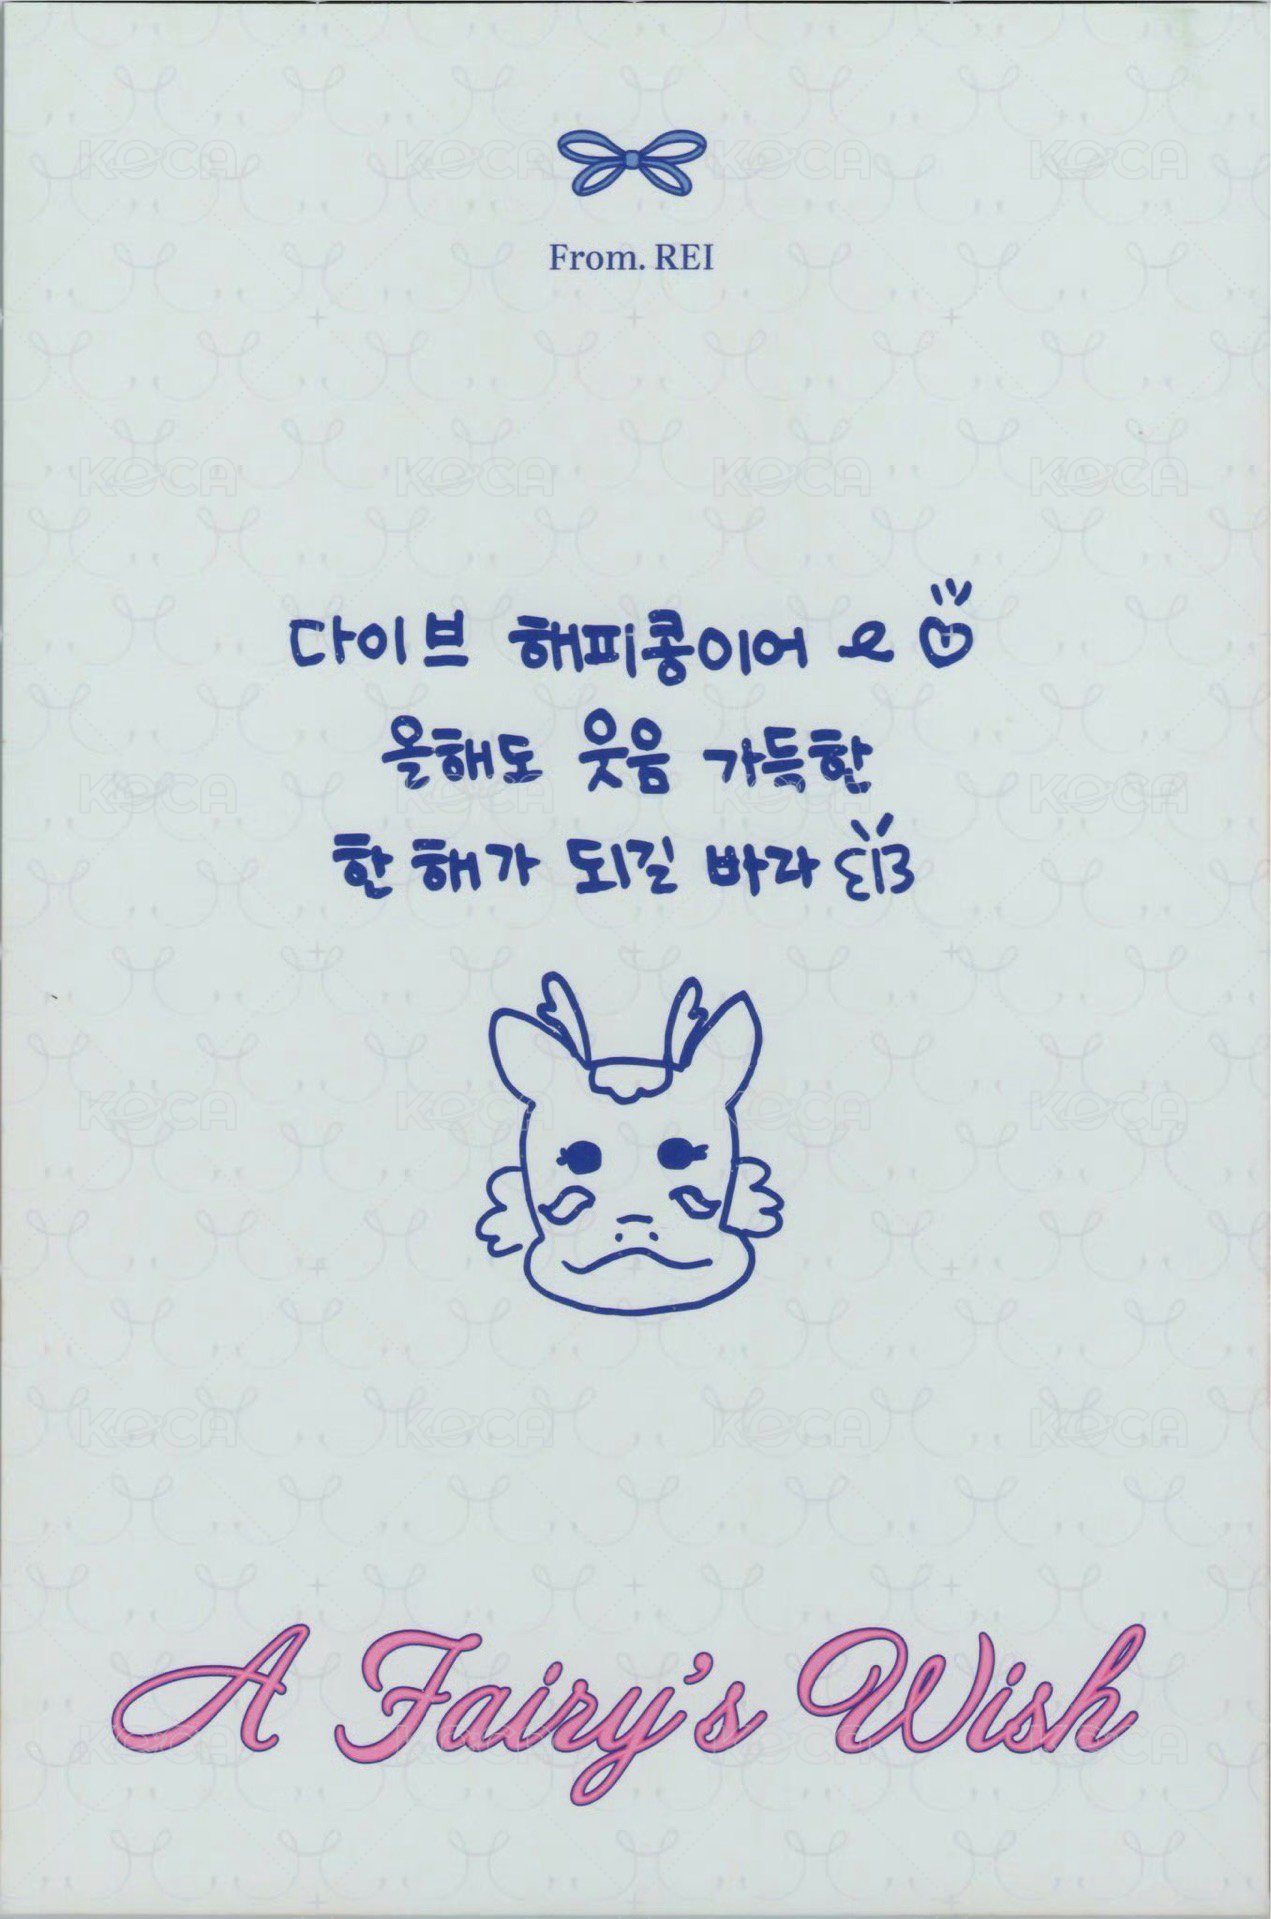 From. REI
다이브 해피콩이어
올해도 웃음 가득한
한 해가 되길 바라
A Fairy's Wish
KOCA